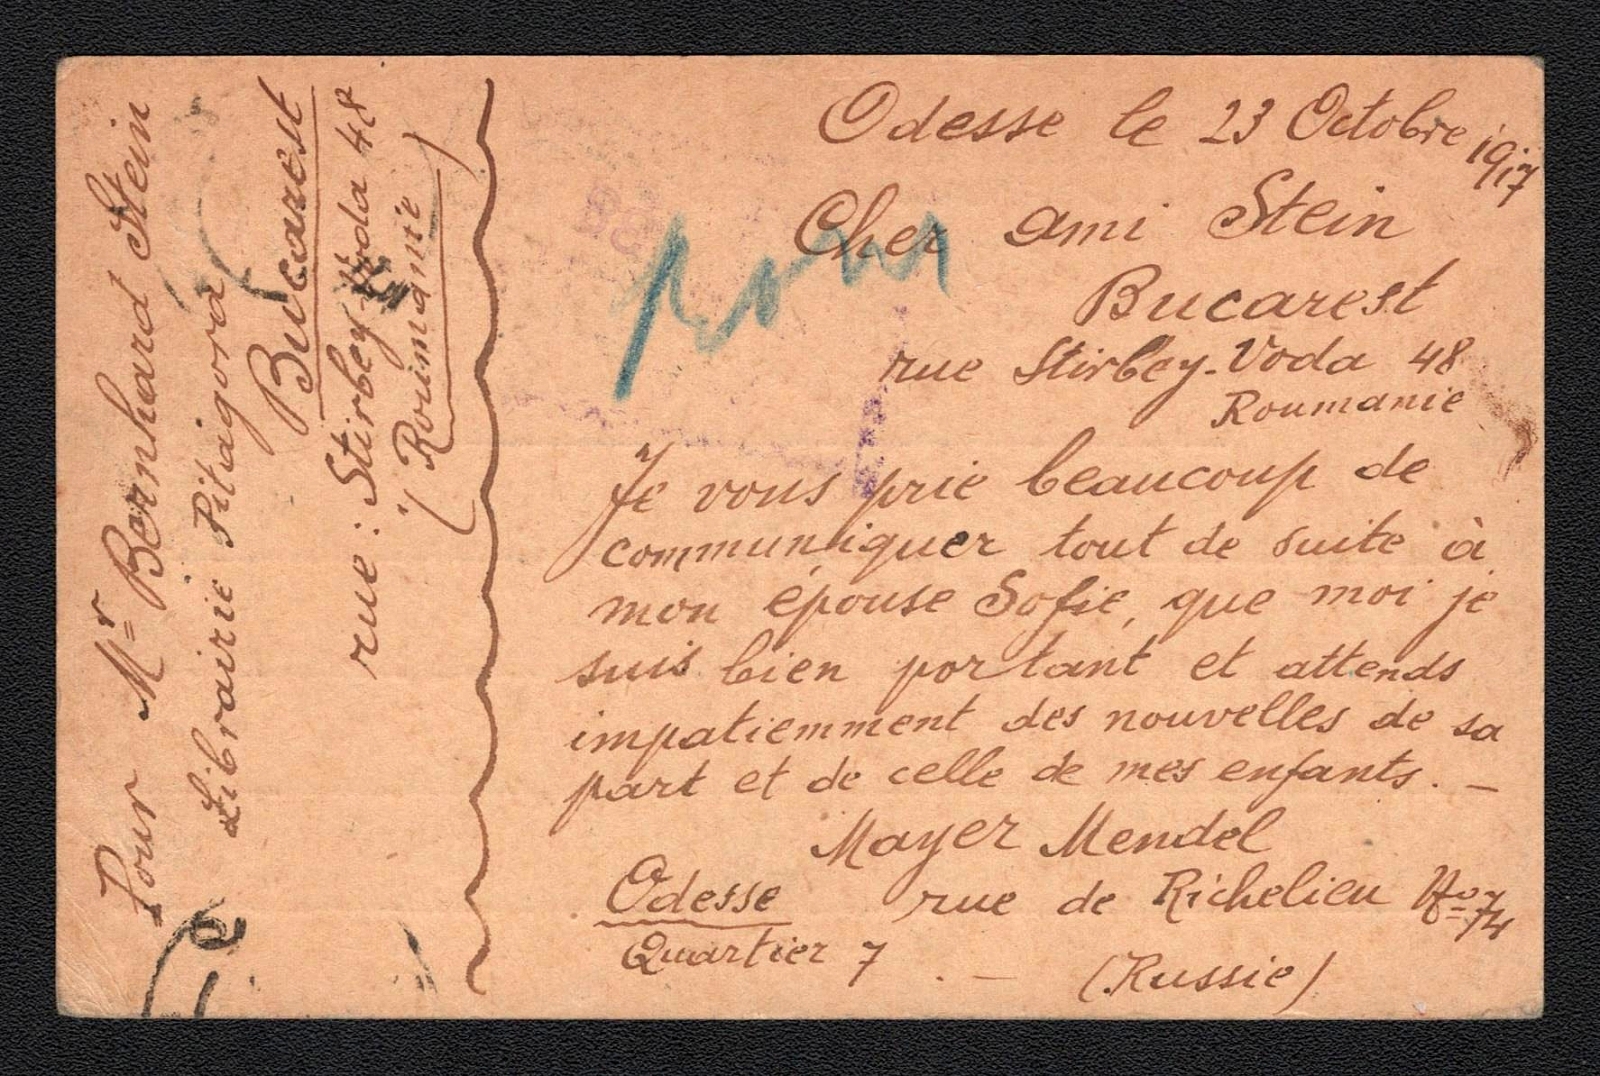 Pour Mr Bernhard Stein
Librairie Pitagora
Bucarest
rue: Stirbey-Voda 48
(Roumanie)
Odesse le 23 Octobre 1917
Cher ami Stein
Bucarest
rue Stirbey-Voda 48
Roumanie
Je vous prie beaucoup de
communiquer tout de suite à
mon épouse Sofie, que moi je
suis bien portant et attends
impatiemment des nouvelles de sa
part et de celle de mes enfants. —
Mayer Mendel
Odesse rue de Richelieu No 74
Quartier 7 . — (Russie)